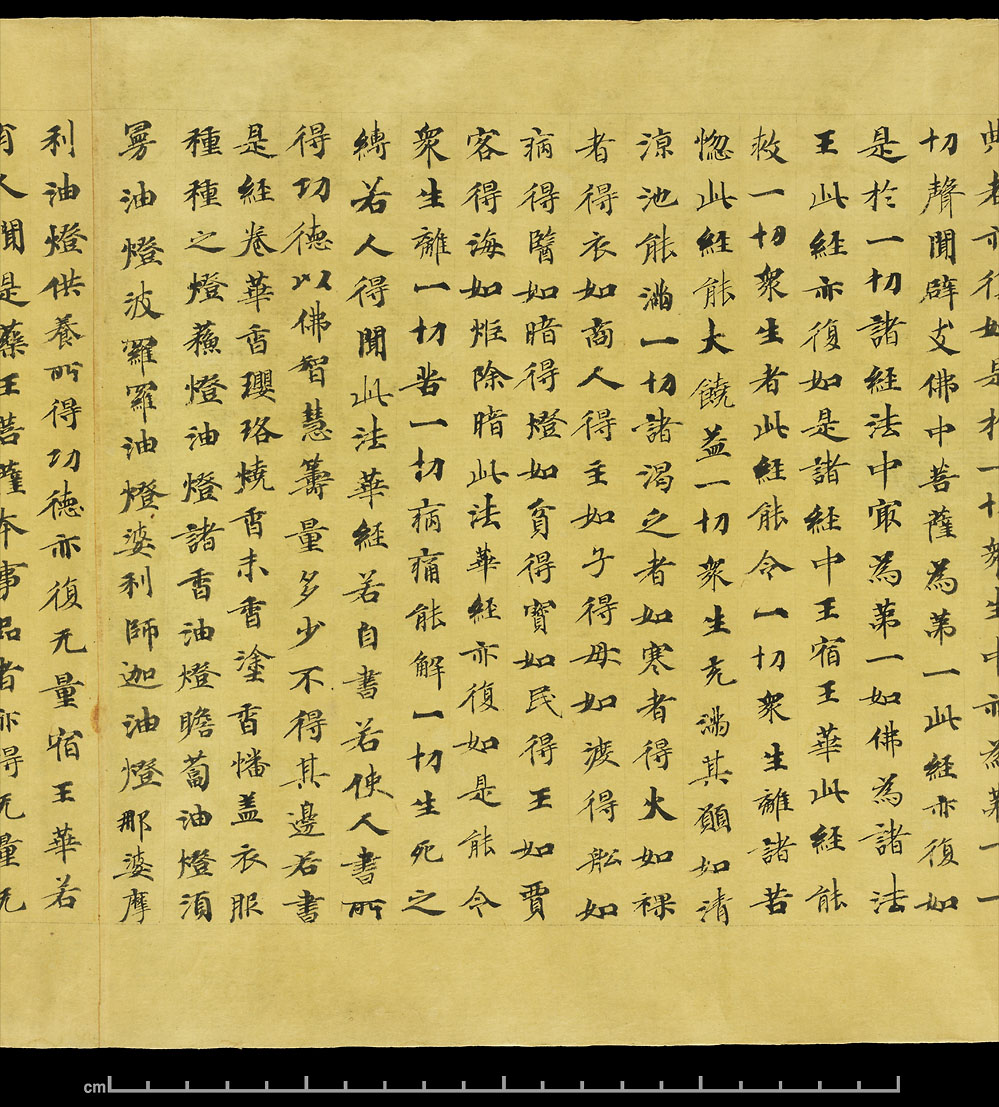 典者亦復如是於一切衆生中亦為第一一
切聲聞辟支佛中菩薩為第一此經亦復如
是於一切諸經法中冣為第一如佛為諸法
王此經亦復如是諸經中王宿王華此經能
救一切衆生者此經能令一切衆生離諸苦
惚此經能大饒益一切衆生充滿其願如清
涼池能滿一切諸渴之者如寒者得火如裸
者得衣如商人得主如子得母如渡得舩如
病得醫如暗得燈如貧得寶如民得王如賈
客得海如炬除暗此法華經亦復如是能令
衆生離一切苦一切病痛能解一切生死之
縛若人得聞此法華經若自書若使人書所
得功德以佛智慧籌量多少不得其邊若書
是經卷華香瓔珞燒香末香塗香幡盖衣服
種種之燈蘓燈油燈諸香油燈瞻蔔油燈須
曼油燈波羅羅油燈婆利師迦油燈那婆摩
利油燈供養所得功德亦復无量宿王華若
有人聞是藥王菩薩本事品者亦得无量无
cm